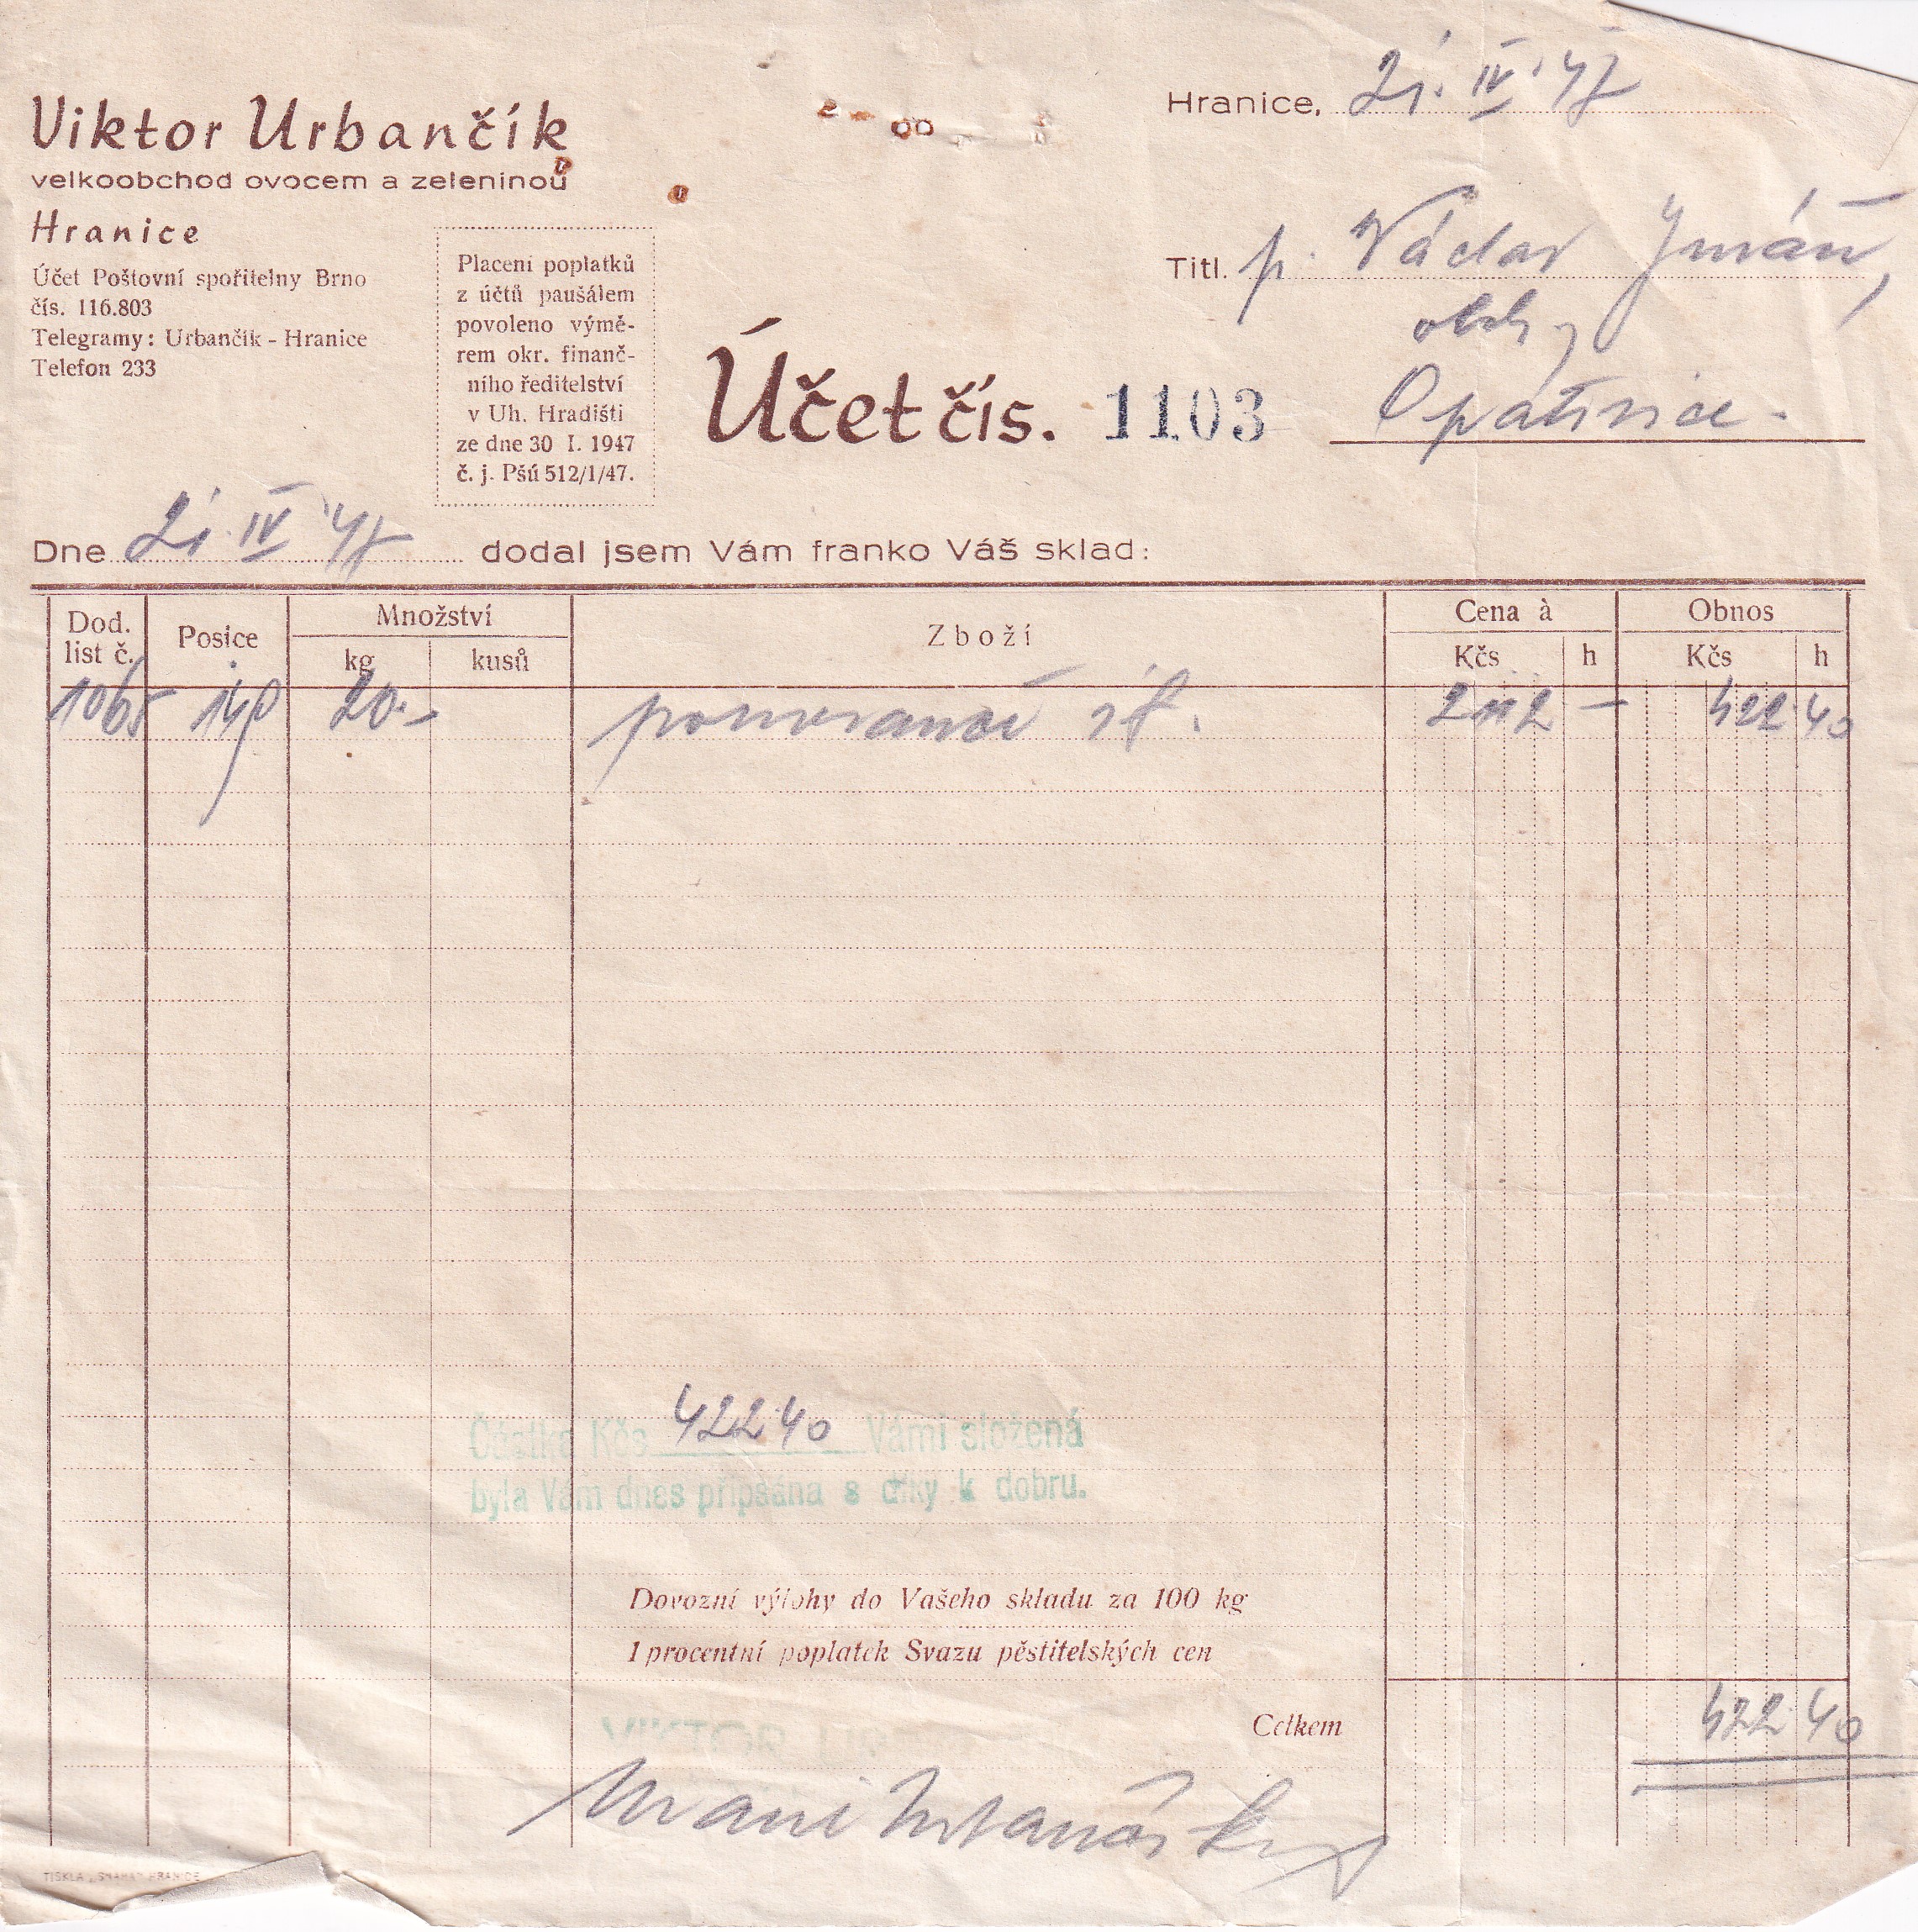 Viktor Urbančík
velkoobchod ovocem a zeleninou
Hranice
Účet Poštovní spořitelny Brno
čís. 116.803
Telegramy: Urbančík - Hranice
Telefon 233
Placení poplatků
z účtů paušálem
povoleno výmě-
rem okr. finanč-
ního ředitelství
v Uh. Hradišti
ze dne 30 I. 1947
č. j. Pšú 512/1/47.
Hranice, 21. IV. 47
Titl. p. Václav
Opatovice.
Účet čís. 1103
Dne 21 IV 47 dodal jsem Vám franko Váš sklad:
Dod. list č. Posice Množství Zboží Cena à Obnos
kg kusů Kčs h Kčs h
1065 20.- 2112 - 422 40
Částka Kčs 422 40 Vámi složená
byla Vám dnes připsána s díky k dobru.
Dovozní výlohy do Vašeho skladu za 100 kg
1 procentní poplatek Svazu pěstitelských cen
VIKTOR
Celkem 422 40
TISKLA „SNAHA“ HRANICE